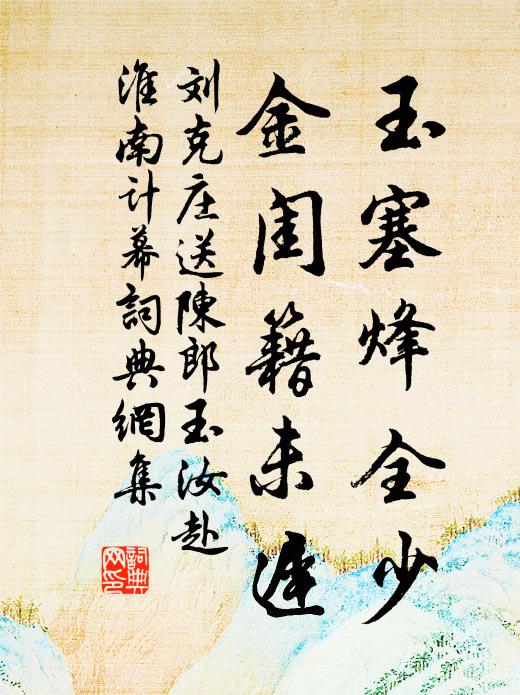 玉塞烽全少
金闺籍未迟
刘克庄送陳郎玉汝赴
淮南计幕詞典網集
詞典网印